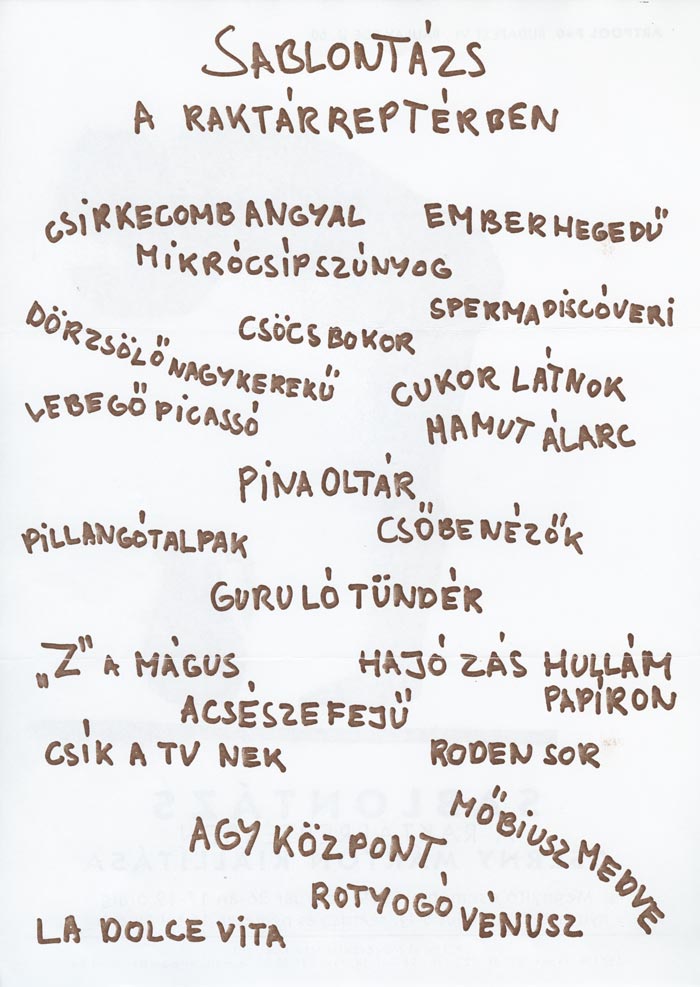 SABLONTÁZS
A RAKTÁRREPTÉRBEN
CSIRKECOMB ANGYAL
EMBERHEGEDŰ
MIKRÓCSÍPSZÚNYOG
SPERMADISCÓVERI
DÖRZSÖLŐ NAGYKEREKŰ
CSÖCSBOKOR
CUKOR LÁTNOK
LEBEGŐ PICASSÓ
MAMUT ÁLARC
PINA OLTÁR
PILLANGÓTALPAK
CSŐBENÉZŐK
GURULÓ TÜNDÉR
„Z" A MÁGUS
HAJÓZÁS HULLÁM
PAPÍRON
ACSÉSZEFEJŰ
CSÍK A TV NEK
RODEN SOR
MŐBIUSZ MEDVE
AGY KÖZPONT
ROTYOGÓ VENUSZ
LA DOLCE VITA